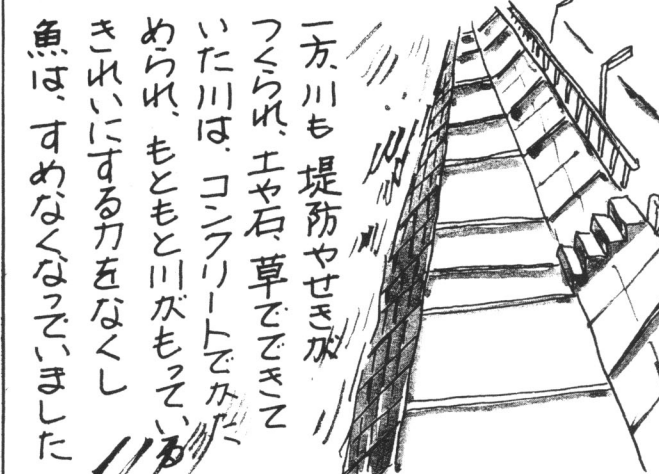 一方、川も堤防やせきが
つくられ、土や石、草でできて
いた川は、コンクリートでかた
められ、もともと川がもっている
きれいにする力をなくし
魚は、すめなくなっていました